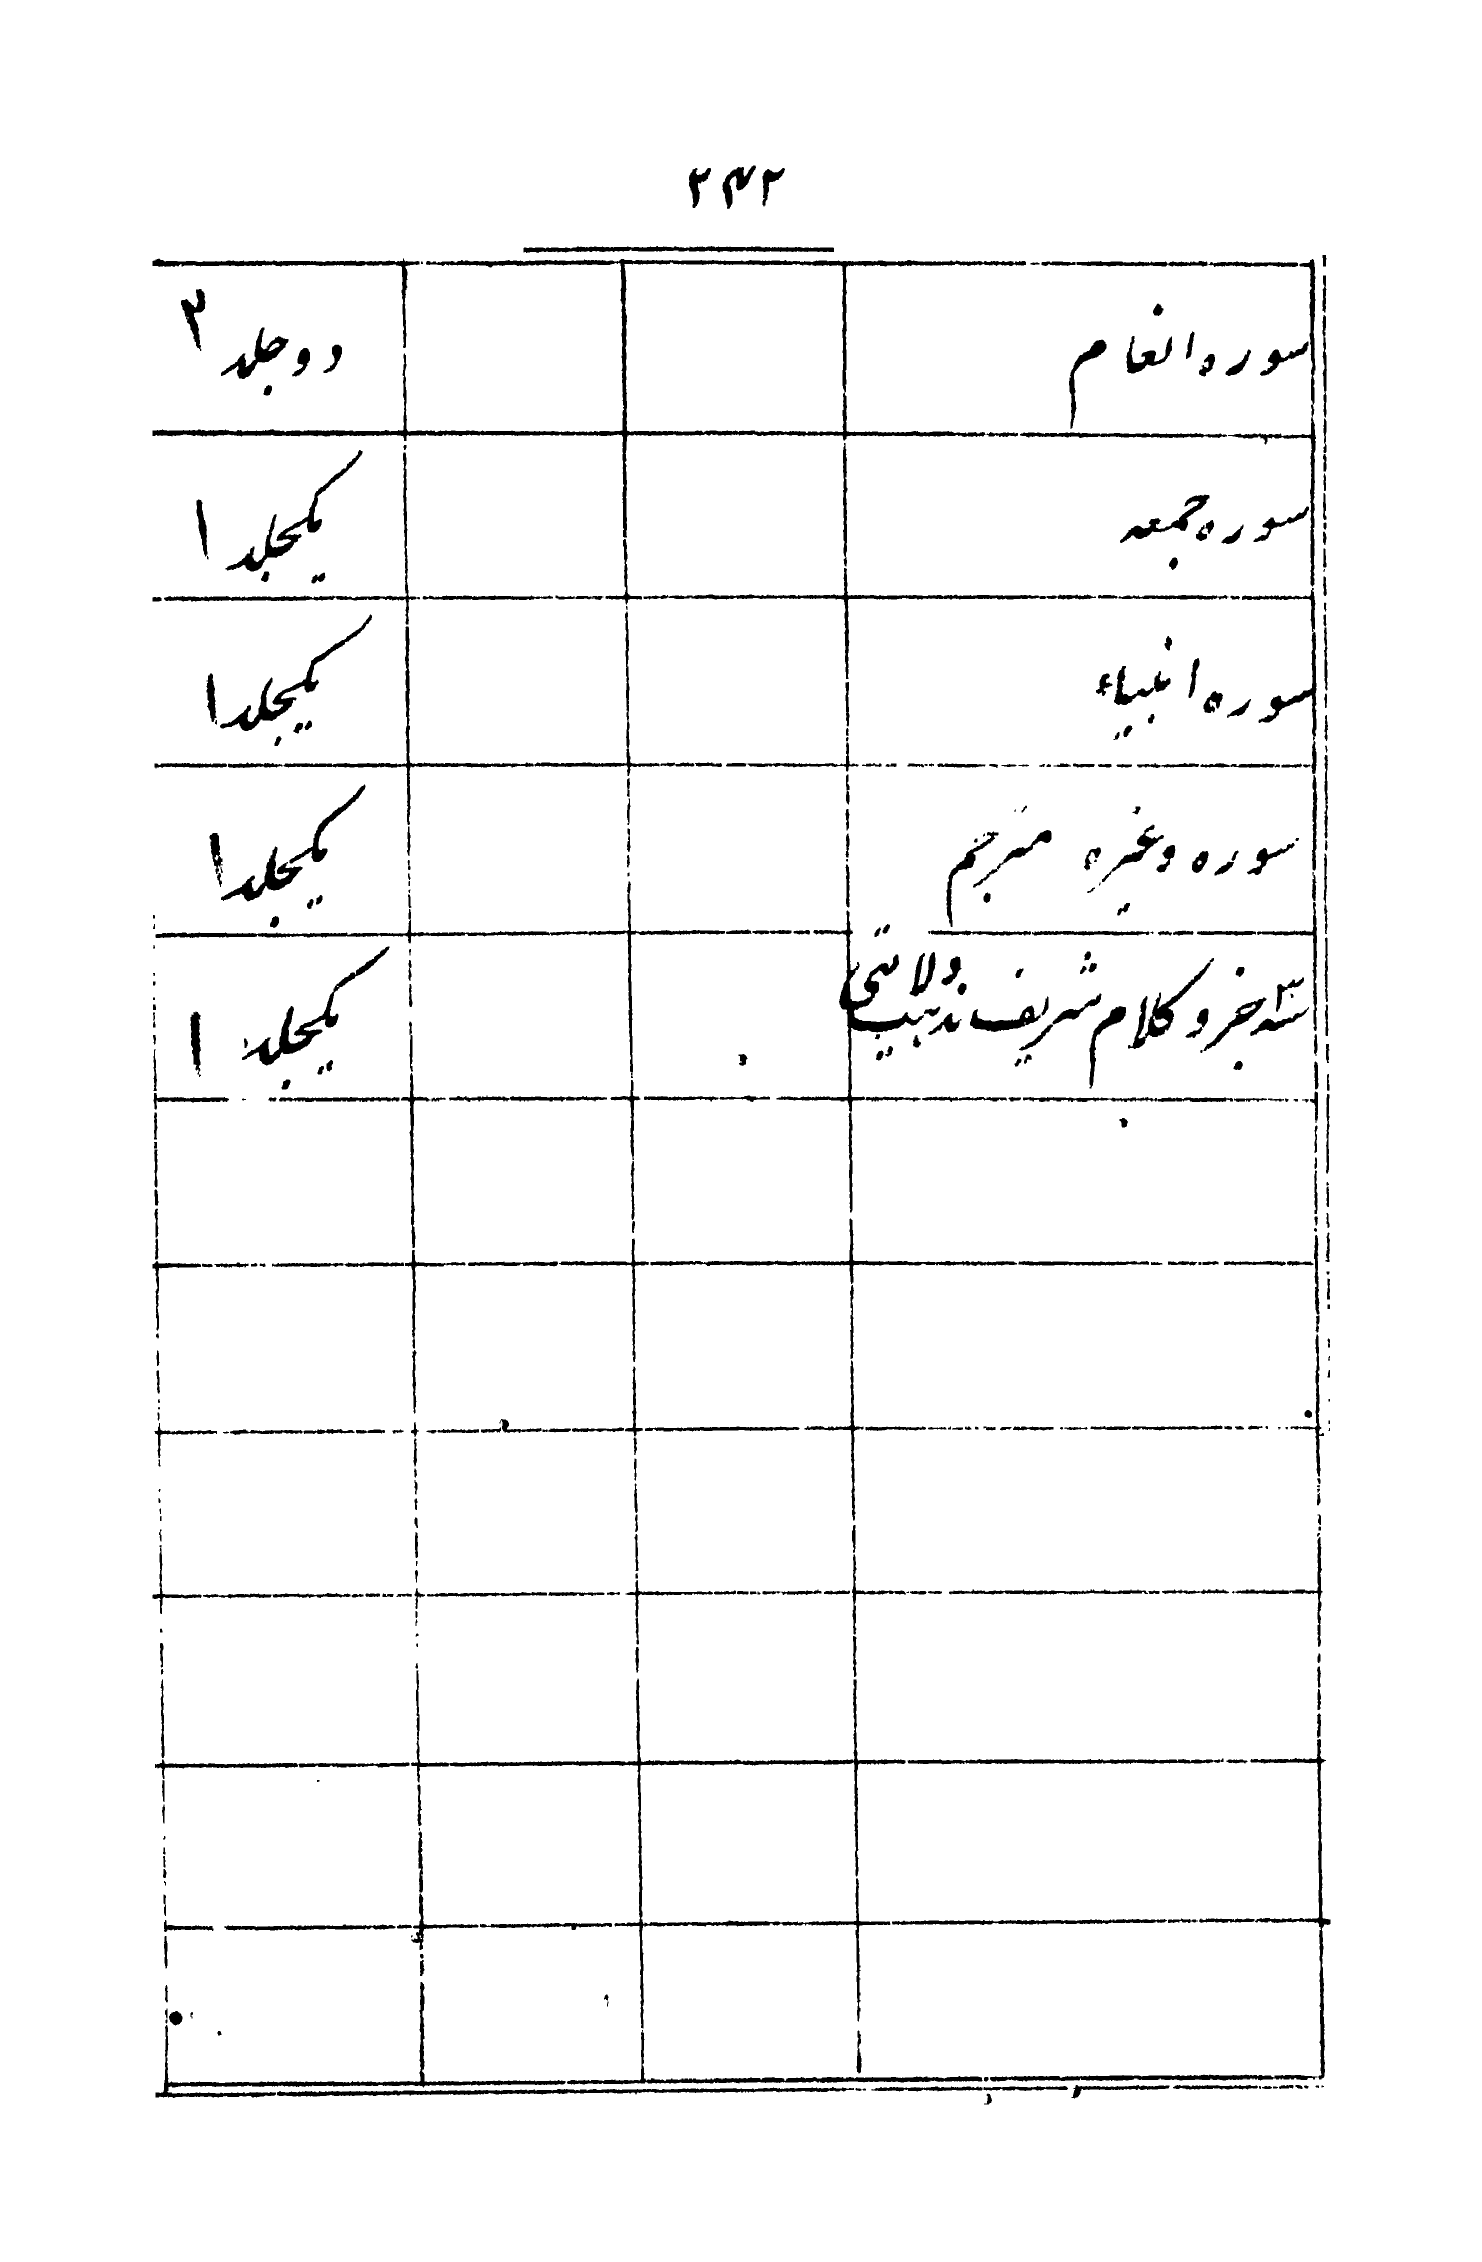 ۲۴۲
سوره انعام دو جلد ۲
سوره جمعه یکجلد ۱
سوره انبیاء یکجلد ۱
سوره وغیره مترجم یکجلد ۱
سه جزو کلام شریف تذہیب ولایتی یکجلد ۱